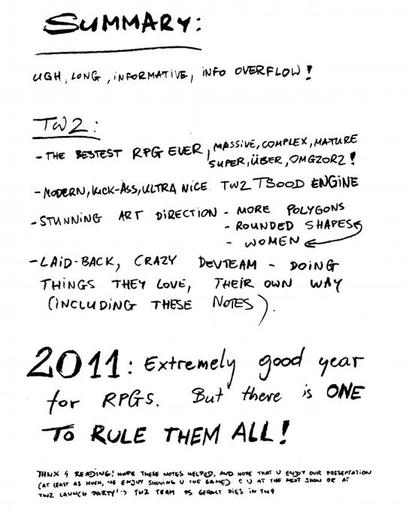 SUMMARY:
UGH, LONG, INFORMATIVE, INFO OVERFLOW!
TW2:
- THE BESTEST RPG EVER, MASSIVE, COMPLEX, MATURE
SUPER, ÜBER, OMGZORZ!
- MODERN, KICK-ASS, ULTRA NICE TW2 TSOOD ENGINE
- STUNNING ART DIRECTION - MORE POLYGONS
- ROUNDED SHAPES
- WOMEN
- LAID-BACK, CRAZY DEVTEAM - DOING
THINGS THEY LOVE, THEIR OWN WAY
(INCLUDING THESE NOTES).
2011: Extremely good year
for RPGs. But there is ONE
TO RULE THEM ALL!
THNX 4 READING! HOPE THESE NOTES HELPED, AND HOPE THAT U ENJOY OUR PRESENTATION
(AT LEAST AS MUCH, WE ENJOY SHOWING U THE GAME) C U AT THE NEXT SHOW OR AT
TW2 LAUNCH PARTY! :) TW2 TEAM PS GERALT DIES IN TW4